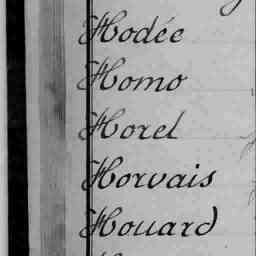 Hodée
Homo
Horel
Horvais
Houard